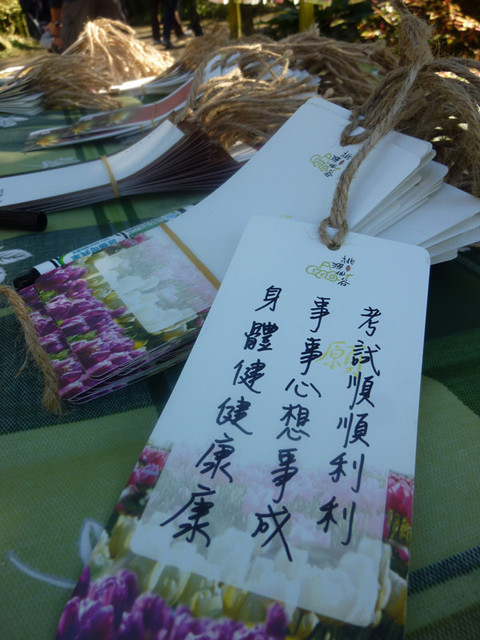 考試順順利利
事事心想事成
身體健健康康